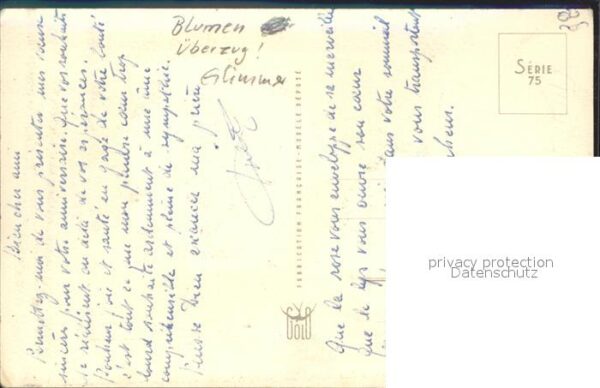 Bien cher ami
Permettez-moi de vous présenter mes vœux
sincères pour votre anniversaire. Que vos souhaits
se réalisent au delà de vos espérances.
Bonheur joie et santé en gage de votre bonté
c'est tout ce que mon pauvre cœur trop
lourd souhaite ardemment à une âme
compréhensible et pleine de sympathie.
Puisse Dieu exaucer ma prière
Blumen
Überzug!
Glimmer
FABRICATION FRANÇAISE - MODÈLE DÉPOSÉ
GOLO
Que la rose vous enveloppe de sa merveille
Que le lys vous ouvre son cœur
dans votre sommeil
vous transportent
SÉRIE
75
privacy protection
Datenschutz